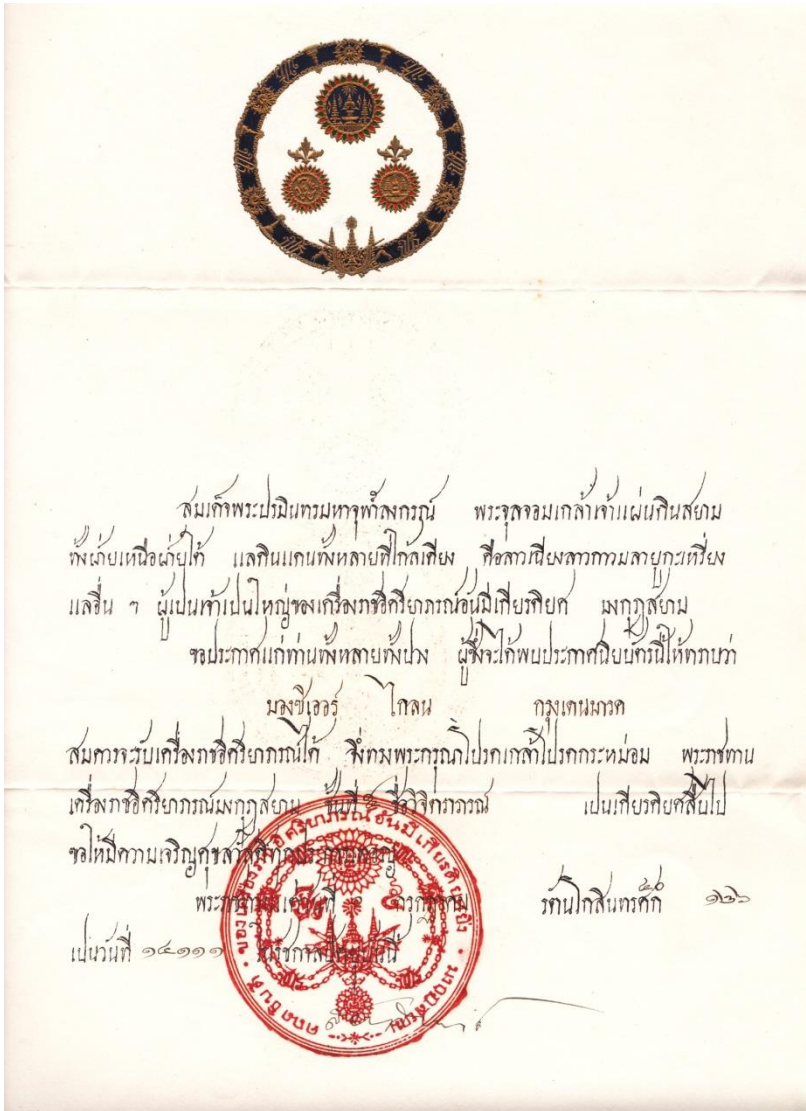 สมเด็จพระปรมินทรมหาจุฬาลงกรณ์ พระจุลจอมเกล้าเจ้าแผ่นดินสยาม
ทั้งฝ่ายเหนือฝ่ายใต้ แลดินแดนทั้งหลายที่ใกล้เคียง คือลาวเฉียงลาวกาวมลายูกะเหรี่ยง
แลอื่น ๆ ผู้เป็นเจ้าเป็นใหญ่ของเครื่องราชอิศริยาภรณ์อันมีเกียรติยศ มงกุฎสยาม
ขอประกาศแก่ท่านทั้งหลายทั้งปวง ผู้ซึ่งจะได้พบประกาศนียบัตรนี้ให้ทราบว่า
มองซิเออร์ ไกลน กรุงเดนมารค
สมควรจะรับเครื่องราชอิศริยาภรณ์ได้ จึ่งทรงพระกรุณาโปรดเกล้าโปรดกระหม่อม พระราชทาน
เครื่องราชอิศริยาภรณ์มงกุฎสยาม ชั้นที่ ชื่อวิจิตราภรณ์ เป็นเกียรติยศสืบไป
ขอให้มีความเจริญศุขสวัสดิ์
รัตนโกสินทรศก ๑๒๖
เปนวันที่ ๑๔๑๑๑ ในรัชกาลปัตยุบันนี้
ของเครื่องราชอิศริยาภรณ์อันมีเกียรติยศยิ่ง